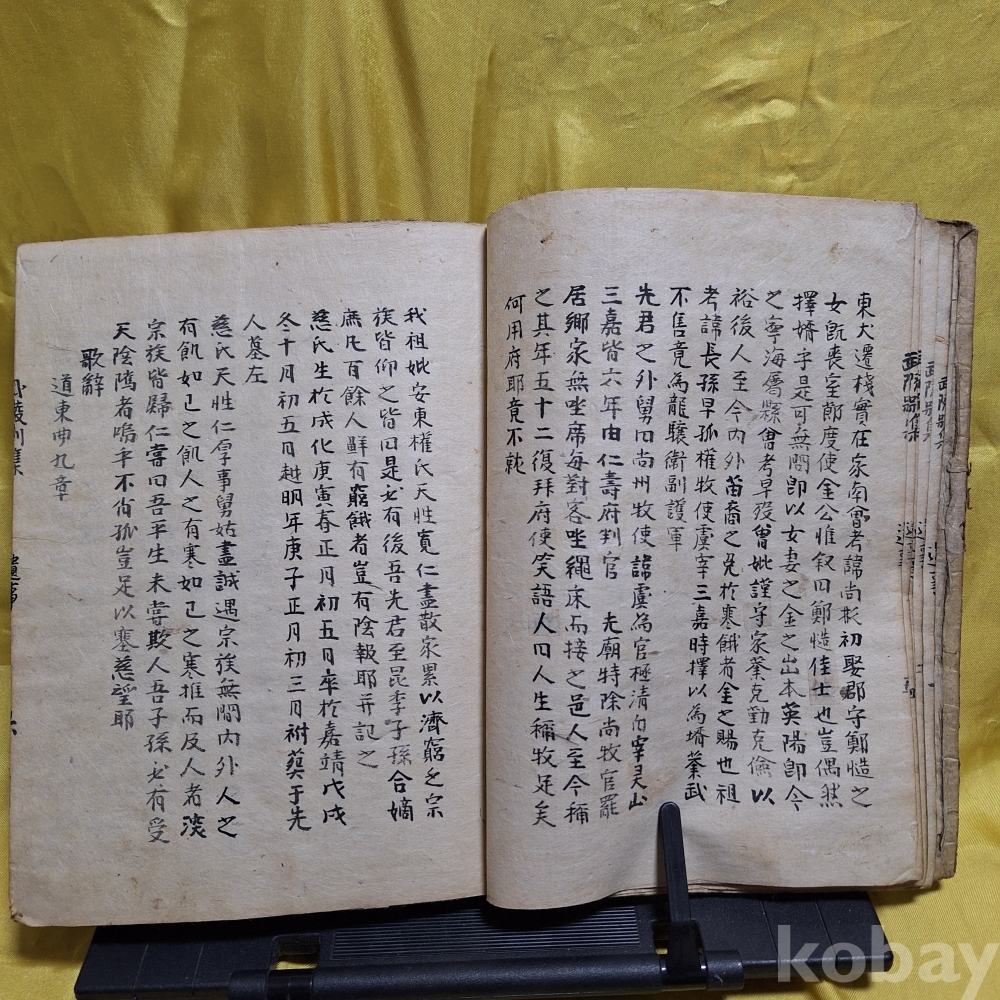 東大遷棧實在家南曾考諱尚彬初娶郡守鄭愷之
女旣喪室節度使金公惟叙曰鄭愷佳士也豈偶然
擇婿乎是可無問卽以女妻之金之出本英陽卽今
之寧海屬縣曾考早歿曾妣謹守家業克勤克儉以
裕後人至今內外苗裔之免於寒餓者金之賜也祖
考諱長孫早孤權牧使虞宰三嘉時擇以為壻業武
不售竟為龍驤衛副護軍
先君之外舅曰尚州牧使諱虞為官極淸白宰灵山
三嘉皆六年由仁壽府判官 先廟特除尚牧官罷
居鄉家無坐席每對客坐繩床而接之邑人至今稱
之其年五十二復拜府使笑語人曰人生稱牧足矣
何用府耶竟不就
我祖妣安東權氏天性寬仁盡散家累以濟窮乏宗
族皆仰之皆曰是必有後吾先君至昆季子孫合嫡
庶凡百餘人鮮有窮餓者豈有陰報耶幷記之
慈氏生於成化庚寅春正月初五日卒於嘉靖戊戌
冬十月初五日越明年庚子正月初三日祔葬于先
人墓左
慈氏天性仁厚事舅姑盡誠遇宗族無間內外人之
有飢如己之飢人之有寒如己之寒推而反人者淡
宗族皆歸仁嘗曰吾平生未嘗欺人吾子孫必有受
天陰隲者嗚乎不肖孤豈足以塞慈望耶
歌辭
道東曲九章
武陵別集
遺事
六
武陵別集